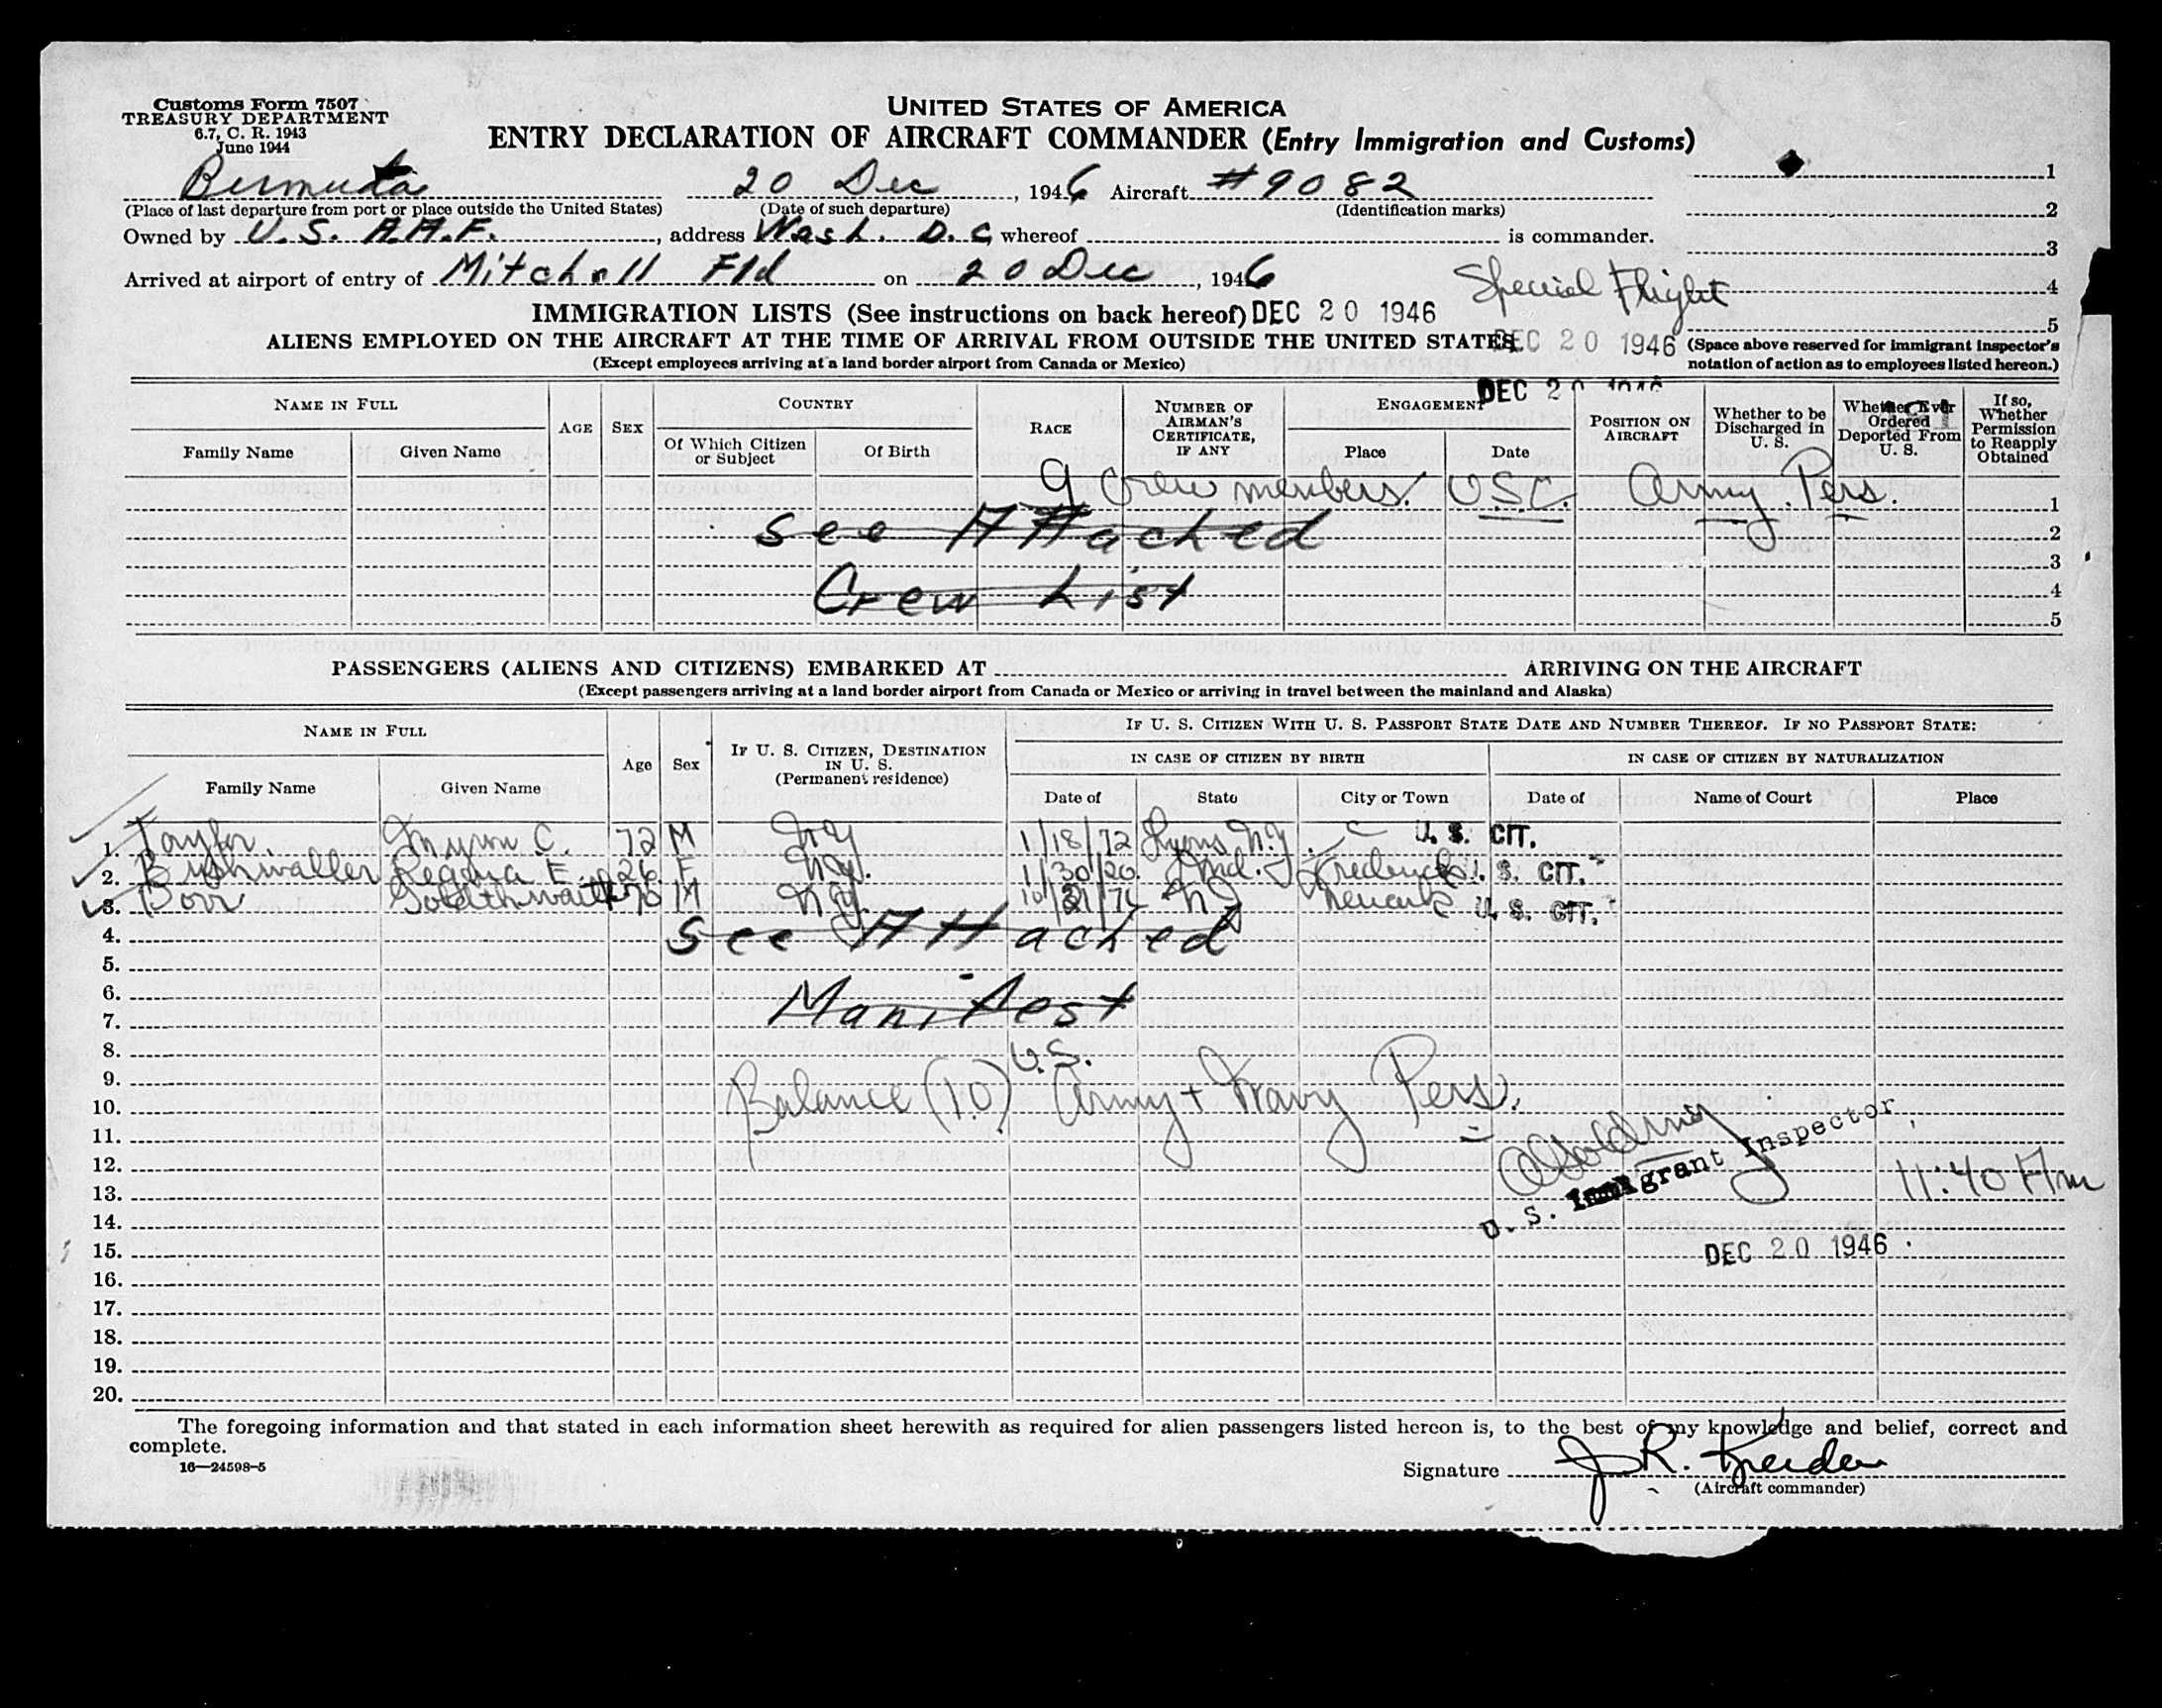 Customs Form 7507
TREASURY DEPARTMENT
6.7, C. R. 1943
June 1944
UNITED STATES OF AMERICA
ENTRY DECLARATION OF AIRCRAFT COMMANDER (Entry Immigration and Customs)
Bermuda 20 Dec, 1946 Aircraft #9082
(Place of last departure from port or place outside the United States) (Date of such departure) (Identification marks)
Owned by U.S. A.A.F., address Wash. D.C. whereof is commander.
Arrived at airport of entry of Mitchell Fld on 20 Dec, 1946
1
2
3
4
5
Special Flight
IMMIGRATION LISTS (See instructions on back hereof) DEC 20 1946
ALIENS EMPLOYED ON THE AIRCRAFT AT THE TIME OF ARRIVAL FROM OUTSIDE THE UNITED STATES DEC 20 1946
(Except employees arriving at a land border airport from Canada or Mexico)
(Space above reserved for immigrant inspector's notation of action as to employees listed hereon.)
DEC 20 1946
NAME IN FULL
Family Name Given Name
AGE SEX
COUNTRY
Of Which Citizen or Subject Of Birth
RACE
NUMBER OF AIRMAN'S CERTIFICATE, IF ANY
ENGAGEMENT
Place Date
POSITION ON AIRCRAFT
Whether to be Discharged in U. S.
Whether Ever Ordered Deported From U. S.
If so, Whether Permission to Reapply Obtained
9 Crew members. U.S.C. Army Pers. 1
See Attached 2
3
Crew List 4
5
PASSENGERS (ALIENS AND CITIZENS) EMBARKED AT ARRIVING ON THE AIRCRAFT
(Except passengers arriving at a land border airport from Canada or Mexico or arriving in travel between the mainland and Alaska)
NAME IN FULL
Family Name Given Name
Age Sex
IF U. S. CITIZEN, DESTINATION IN U. S.
(Permanent residence)
IF U. S. CITIZEN WITH U. S. PASSPORT STATE DATE AND NUMBER THEREOF. IF NO PASSPORT STATE:
IN CASE OF CITIZEN BY BIRTH IN CASE OF CITIZEN BY NATURALIZATION
Date of State City or Town Date of Name of Court Place
1. Taylor Myron C. 72 M NY 1/18/72 Lyons N.Y. U. S. CIT.
2. Bushwaller Regina E. 26 F NY. 1/30/20 Md. Frederick U. S. CIT.
3. Dorr Goldthwaite 70 M NY. 10/21/76 NJ Newark U. S. CIT.
4. See Attached
5.
6.
7. Manifest
8.
9. U.S.
10. Balance (10) Army + Navy Pers.
11.
12.
U. S. Immigrant Inspector
11:40 Am
13.
14.
15. DEC 20 1946
16.
17.
18.
19.
20.
The foregoing information and that stated in each information sheet herewith as required for alien passengers listed hereon is, to the best of my knowledge and belief, correct and
complete.
16—24598-5
Signature J R.
(Aircraft commander)